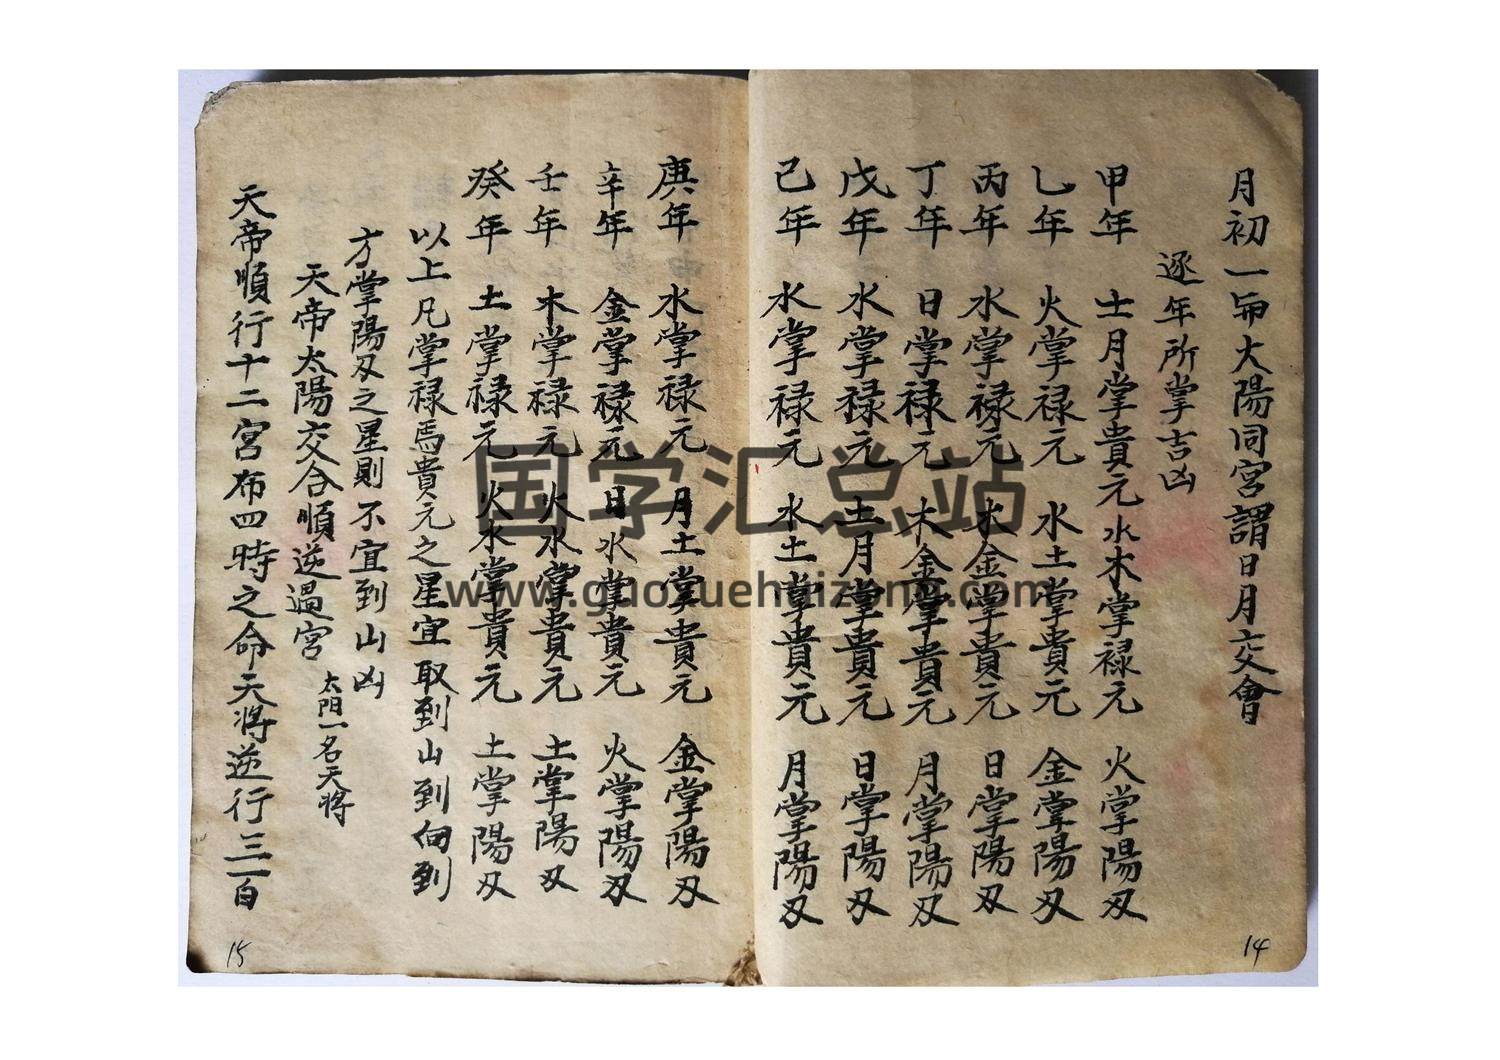 月初一命大陽同宮謂日月交會
逐年所掌吉凶
甲年 土月掌貴元 水木掌禄元 火掌陽刄
乙年 火掌禄元 水土掌貴元 金掌陽刄
丙年 水掌禄元 木金掌貴元 日掌陽刄
丁年 日掌禄元 木金掌貴元 月掌陽刄
戊年 水掌禄元 土月掌貴元 日掌陽刄
己年 水掌禄元 水土掌貴元 月掌陽刄
14
庚年 水掌禄元 月土掌貴元 金掌陽刄
辛年 金掌禄元 日水掌貴元 火掌陽刄
壬年 木掌禄元 火水掌貴元 土掌陽刄
癸年 土掌禄元 火水掌貴元 土掌陽刄
以上凡掌禄焉貴元之星宜取到山到向到
方掌陽刄之星則不宜到山凶
天帝太陽交合順逆過宮 太阳一名天將
天帝順行十二宮布四時之命天將逆行三百
15
国学汇总站
www.guoxuehuizong.com